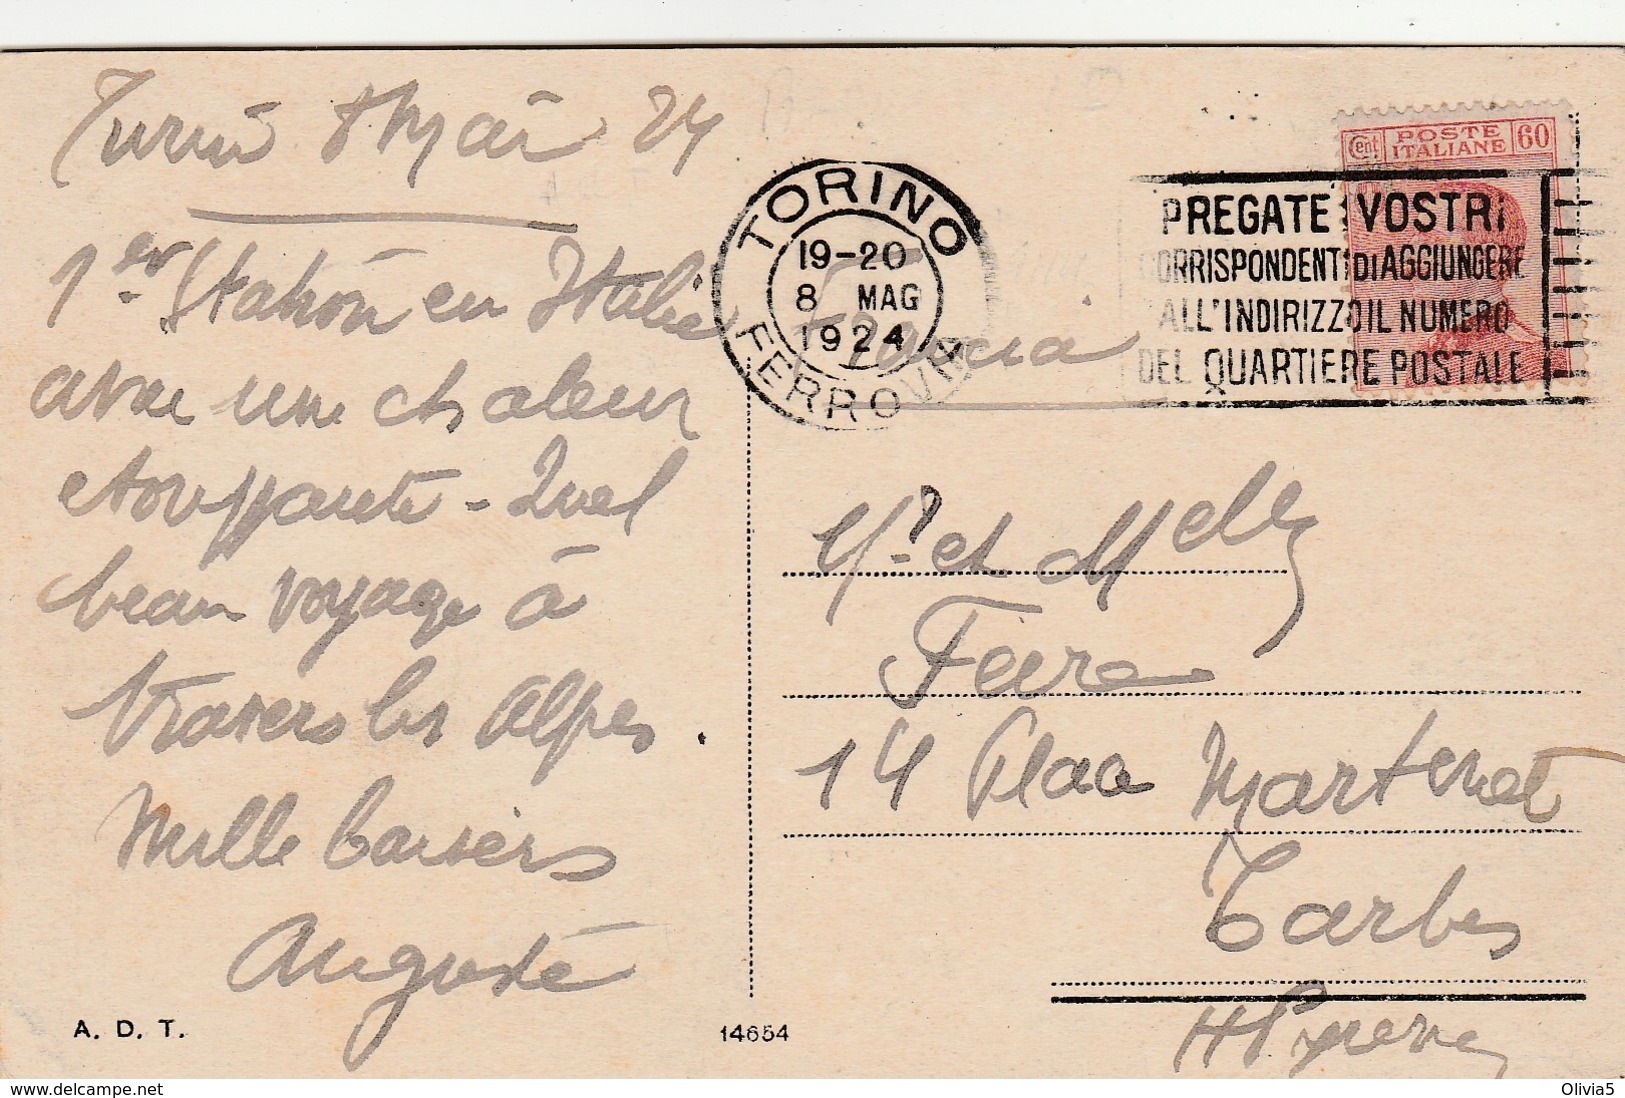 Turin 8 Mai 24
1er Station en Italie
avec une chaleur
etouffante - Quel
beau voyage à
travers les Alpes.
Mille baisers
Auguste
A. D. T.
14654
TORINO
19-20
8 MAG
1924
FERROVIA
Francia
PREGATE I VOSTRI
CORRISPONDENTI DI AGGIUNGERE
ALL'INDIRIZZO IL NUMERO
DEL QUARTIERE POSTALE
Cent POSTE ITALIANE 60
Mr et Melle
14 Place Marcadieu
Tarbes
H Pyrenees
Olivia5